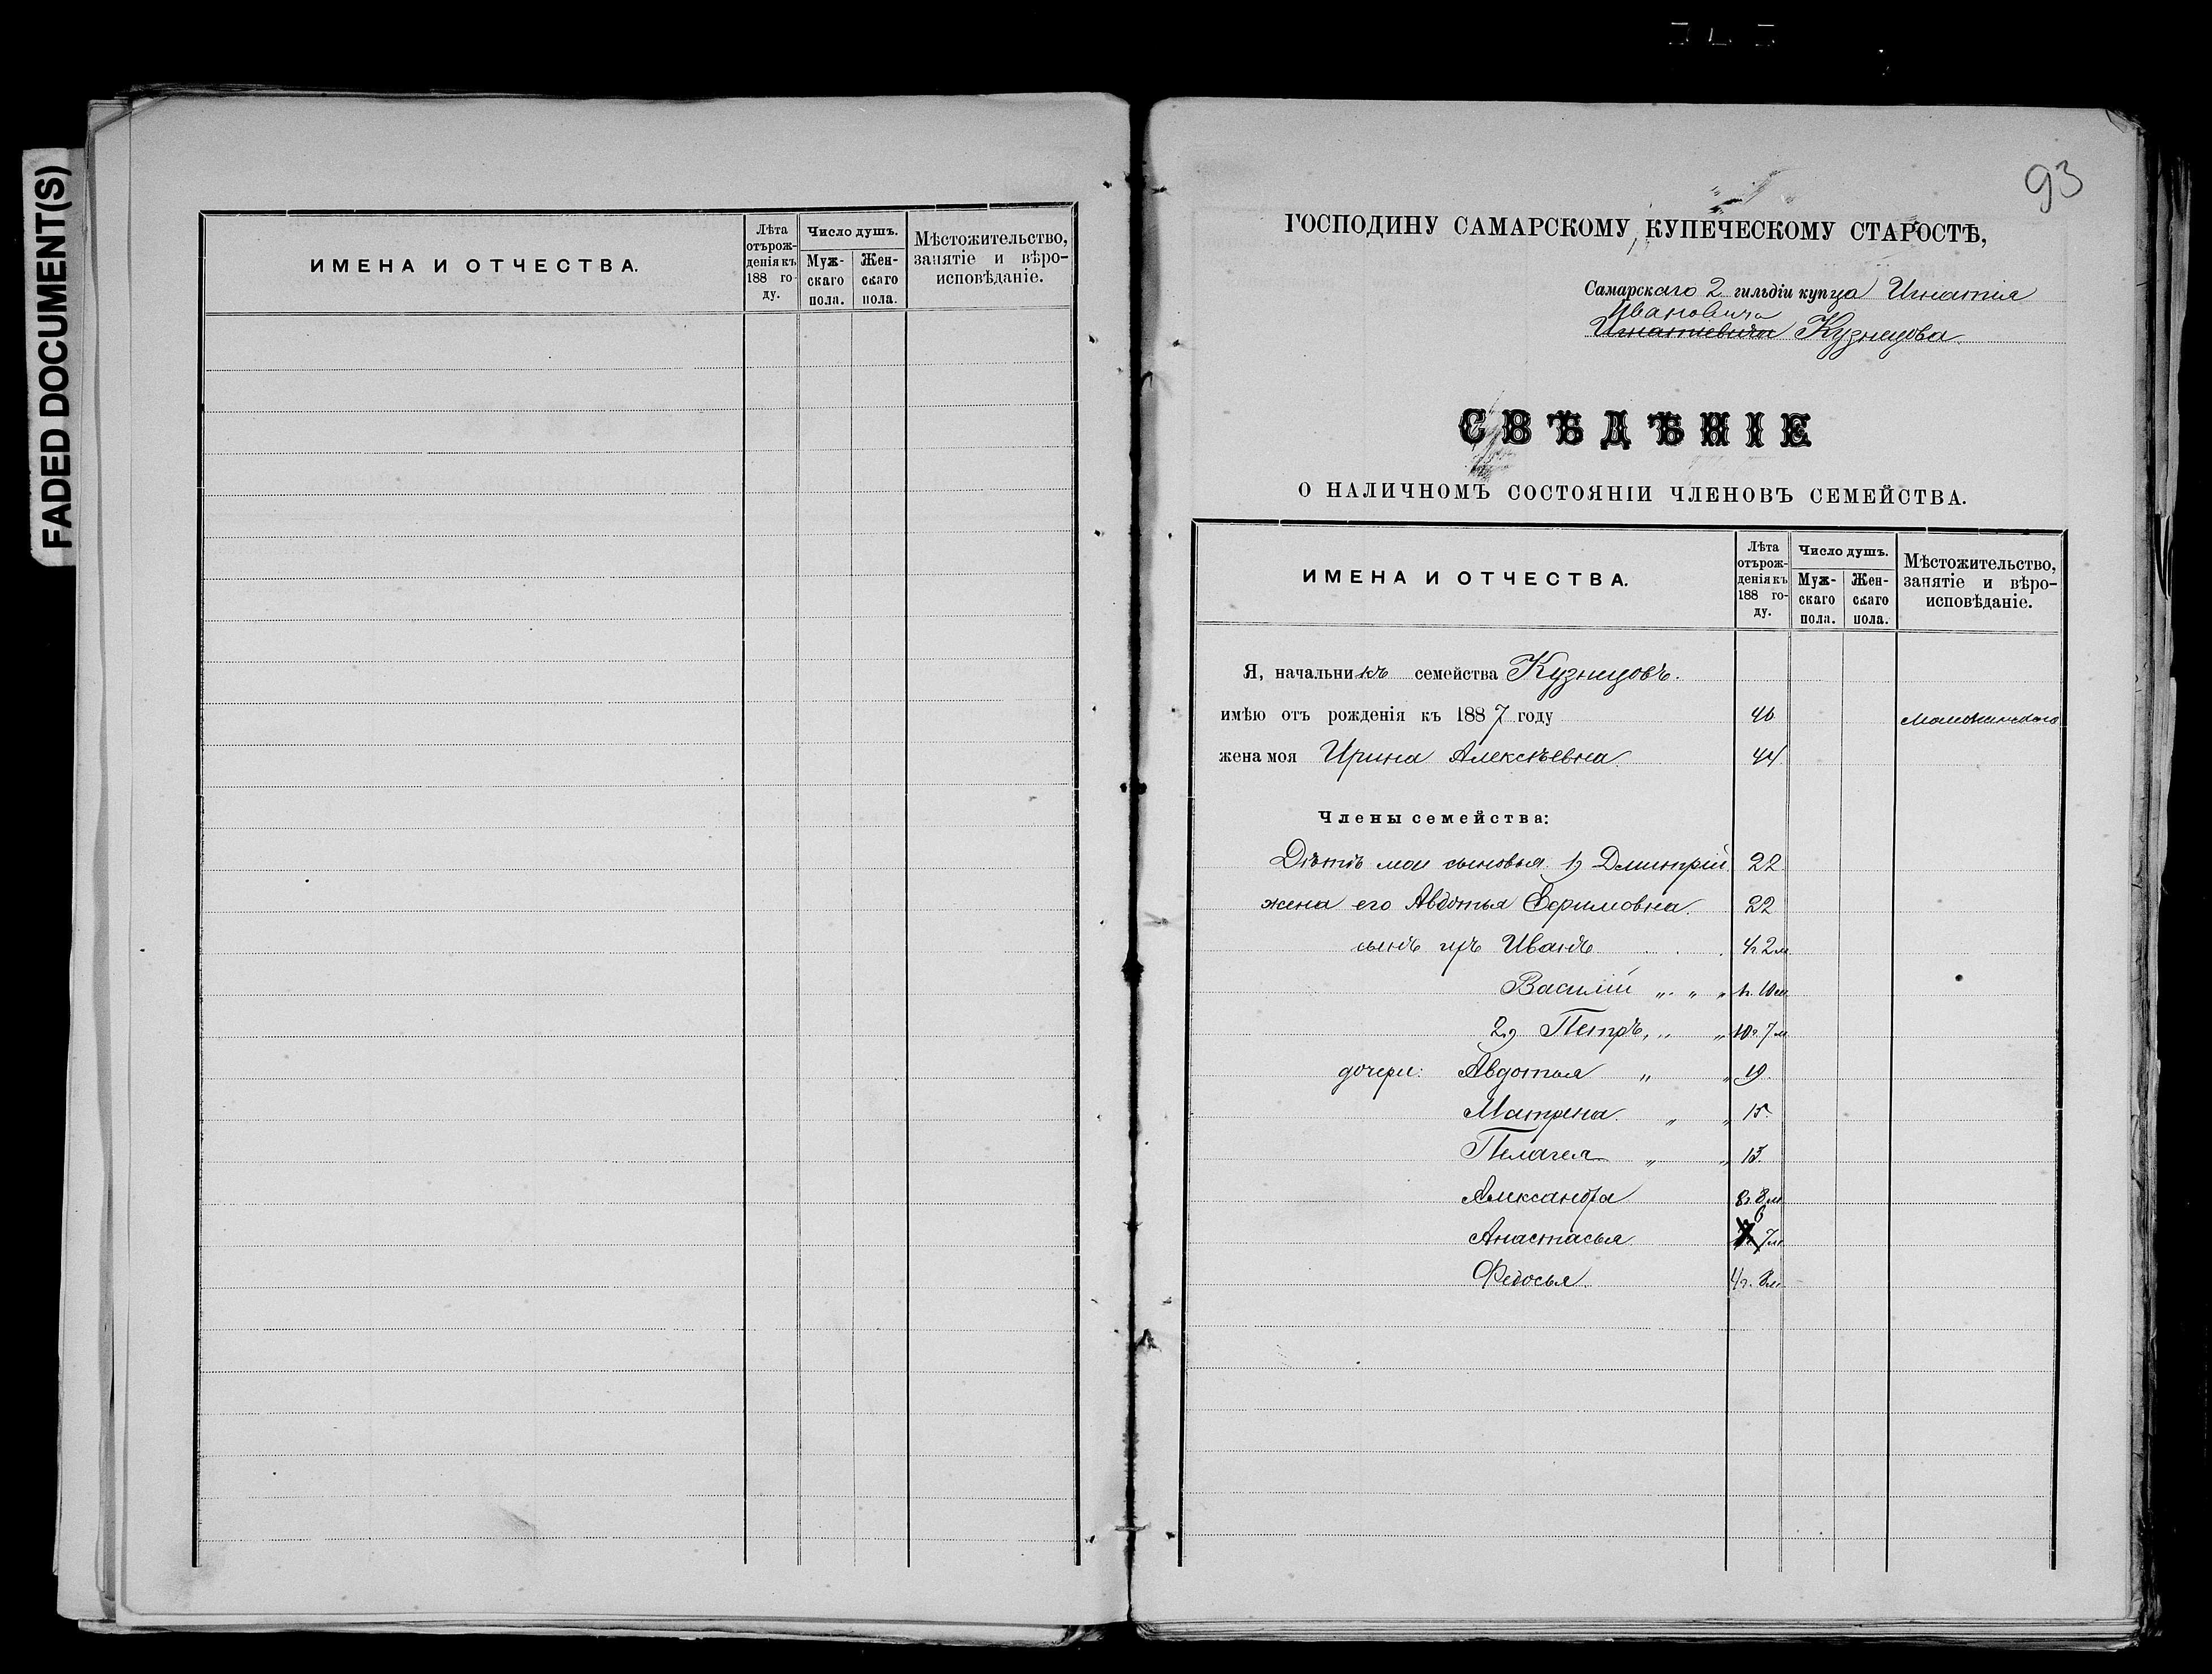 FADED DOCUMENT(S)
ИМЕНА И ОТЧЕСТВА.
Лѣта отърожденія къ 188 году.
Число душъ.
Мужскаго пола.
Женскаго пола.
Мѣстожительство, занятіе и вѣроисповѣданіе.
93
ГОСПОДИНУ САМАРСКОМУ КУПЕЧЕСКОМУ СТАРОСТѢ,
Самарскаго 2 гильдіи купца Игнатія
Ивановича
Игнатиевича Кузнецова
СВѢДѢНІЕ
О НАЛИЧНОМЪ СОСТОЯНІИ ЧЛЕНОВЪ СЕМЕЙСТВА.
ИМЕНА И ОТЧЕСТВА.
Лѣта отърожденія къ 188 году.
Число душъ.
Мужскаго пола.
Женскаго пола.
Мѣстожительство, занятіе и вѣроисповѣданіе.
Я, начальникъ семейства Кузнецовъ.
имѣю отъ рожденія къ 1887 году 46
жена моя Ирина Алексѣевна 44
Члены семейства:
Дѣтѣ мои сыновья 1) Дмитрій 22
жена его Авдотья Ефимовна. 22
сынъ ихъ Иванъ 4г 2м
Василій „ „ „ 1г. 10м
2) Петръ, „ „ 10г 7м
дочери: Авдотья „ „ 19.
Матрена. „ „ 15.
Пелагея „ „ 13.
Александра 8г. 8м
6
Анастасья 7м
Федосья 4г. 8м